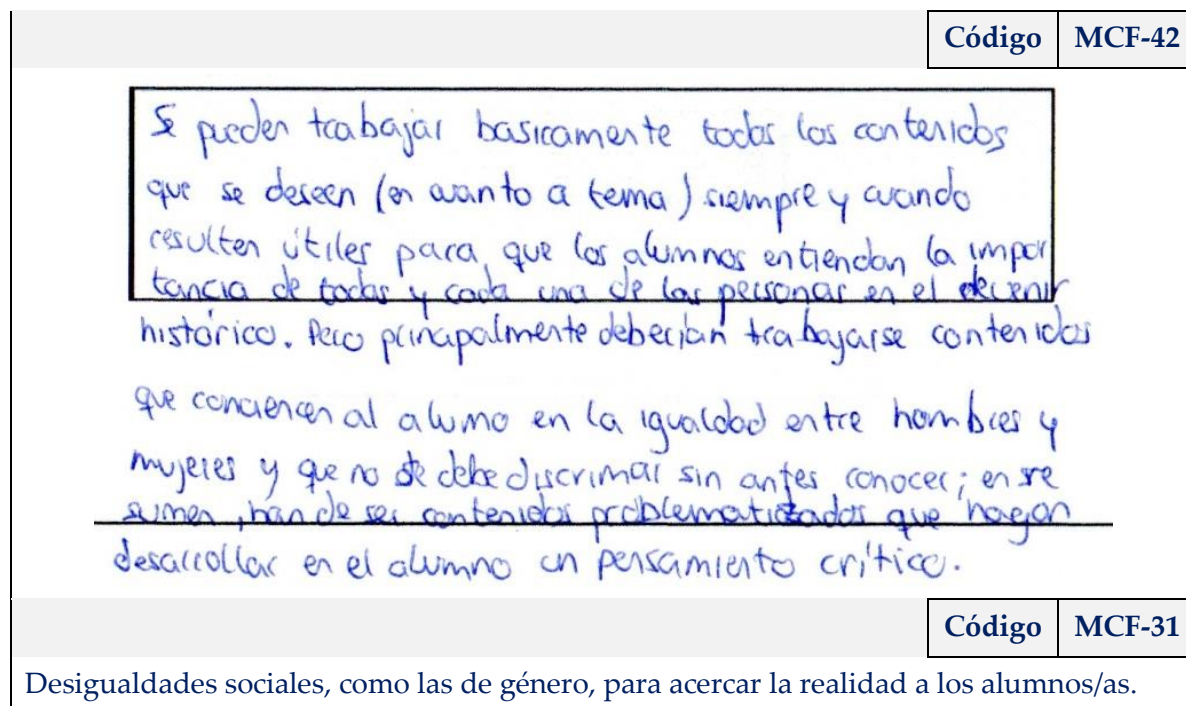 Código MCF-42
Se pueden trabajar basicamente todos los contenidos
que se deseen (en cuanto a tema) siempre y cuando
resulten útiles para que los alumnos entiendan la impor
tancia de todas y cada una de las personas en el devenir
histórico. Pero principalmente deberían trabajarse contenidos
que conciencen al alumo en la igualdad entre hombres y
mujeres y que no se debe discrimar sin antes conocer; en re
sumen, han de ser contenidos problematizados que hagan
desarrollar en el alumno un pensamiento crítico.
Código MCF-31
Desigualdades sociales, como las de género, para acercar la realidad a los alumnos/as.